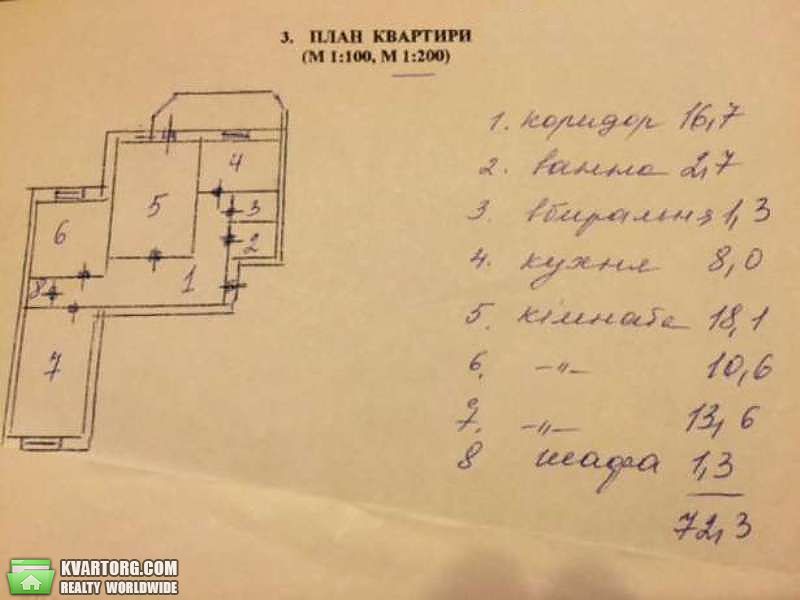 3. ПЛАН КВАРТИРИ
(М 1:100, М 1:200)
1. коридор 16,7
2. ванна 2,7
3. вбиральня 1,3
4. кухня 8,0
5. кімната 18,1
6. -"- 10,6
7. -"- 13,6
8 шафа 1,3
72,3
4
5
3
6
2
8
1
7
KVARTORG.COM
REALTY WORLDWIDE